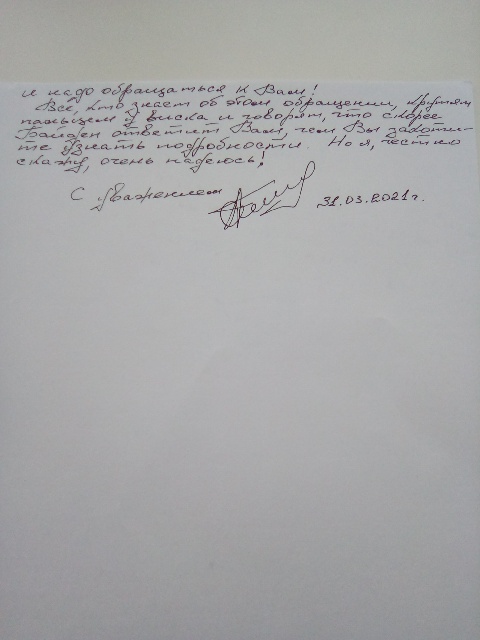 и надо обращаться к Вам!
Все, кто знает об этом обращении, крутят
пальцем у виска и говорят, что скорее
Байден ответит Вам, чем Вы захоти-
те узнать подробности. Но я, честно
скажу, очень надеюсь!
С уважением
31.03.2021г.